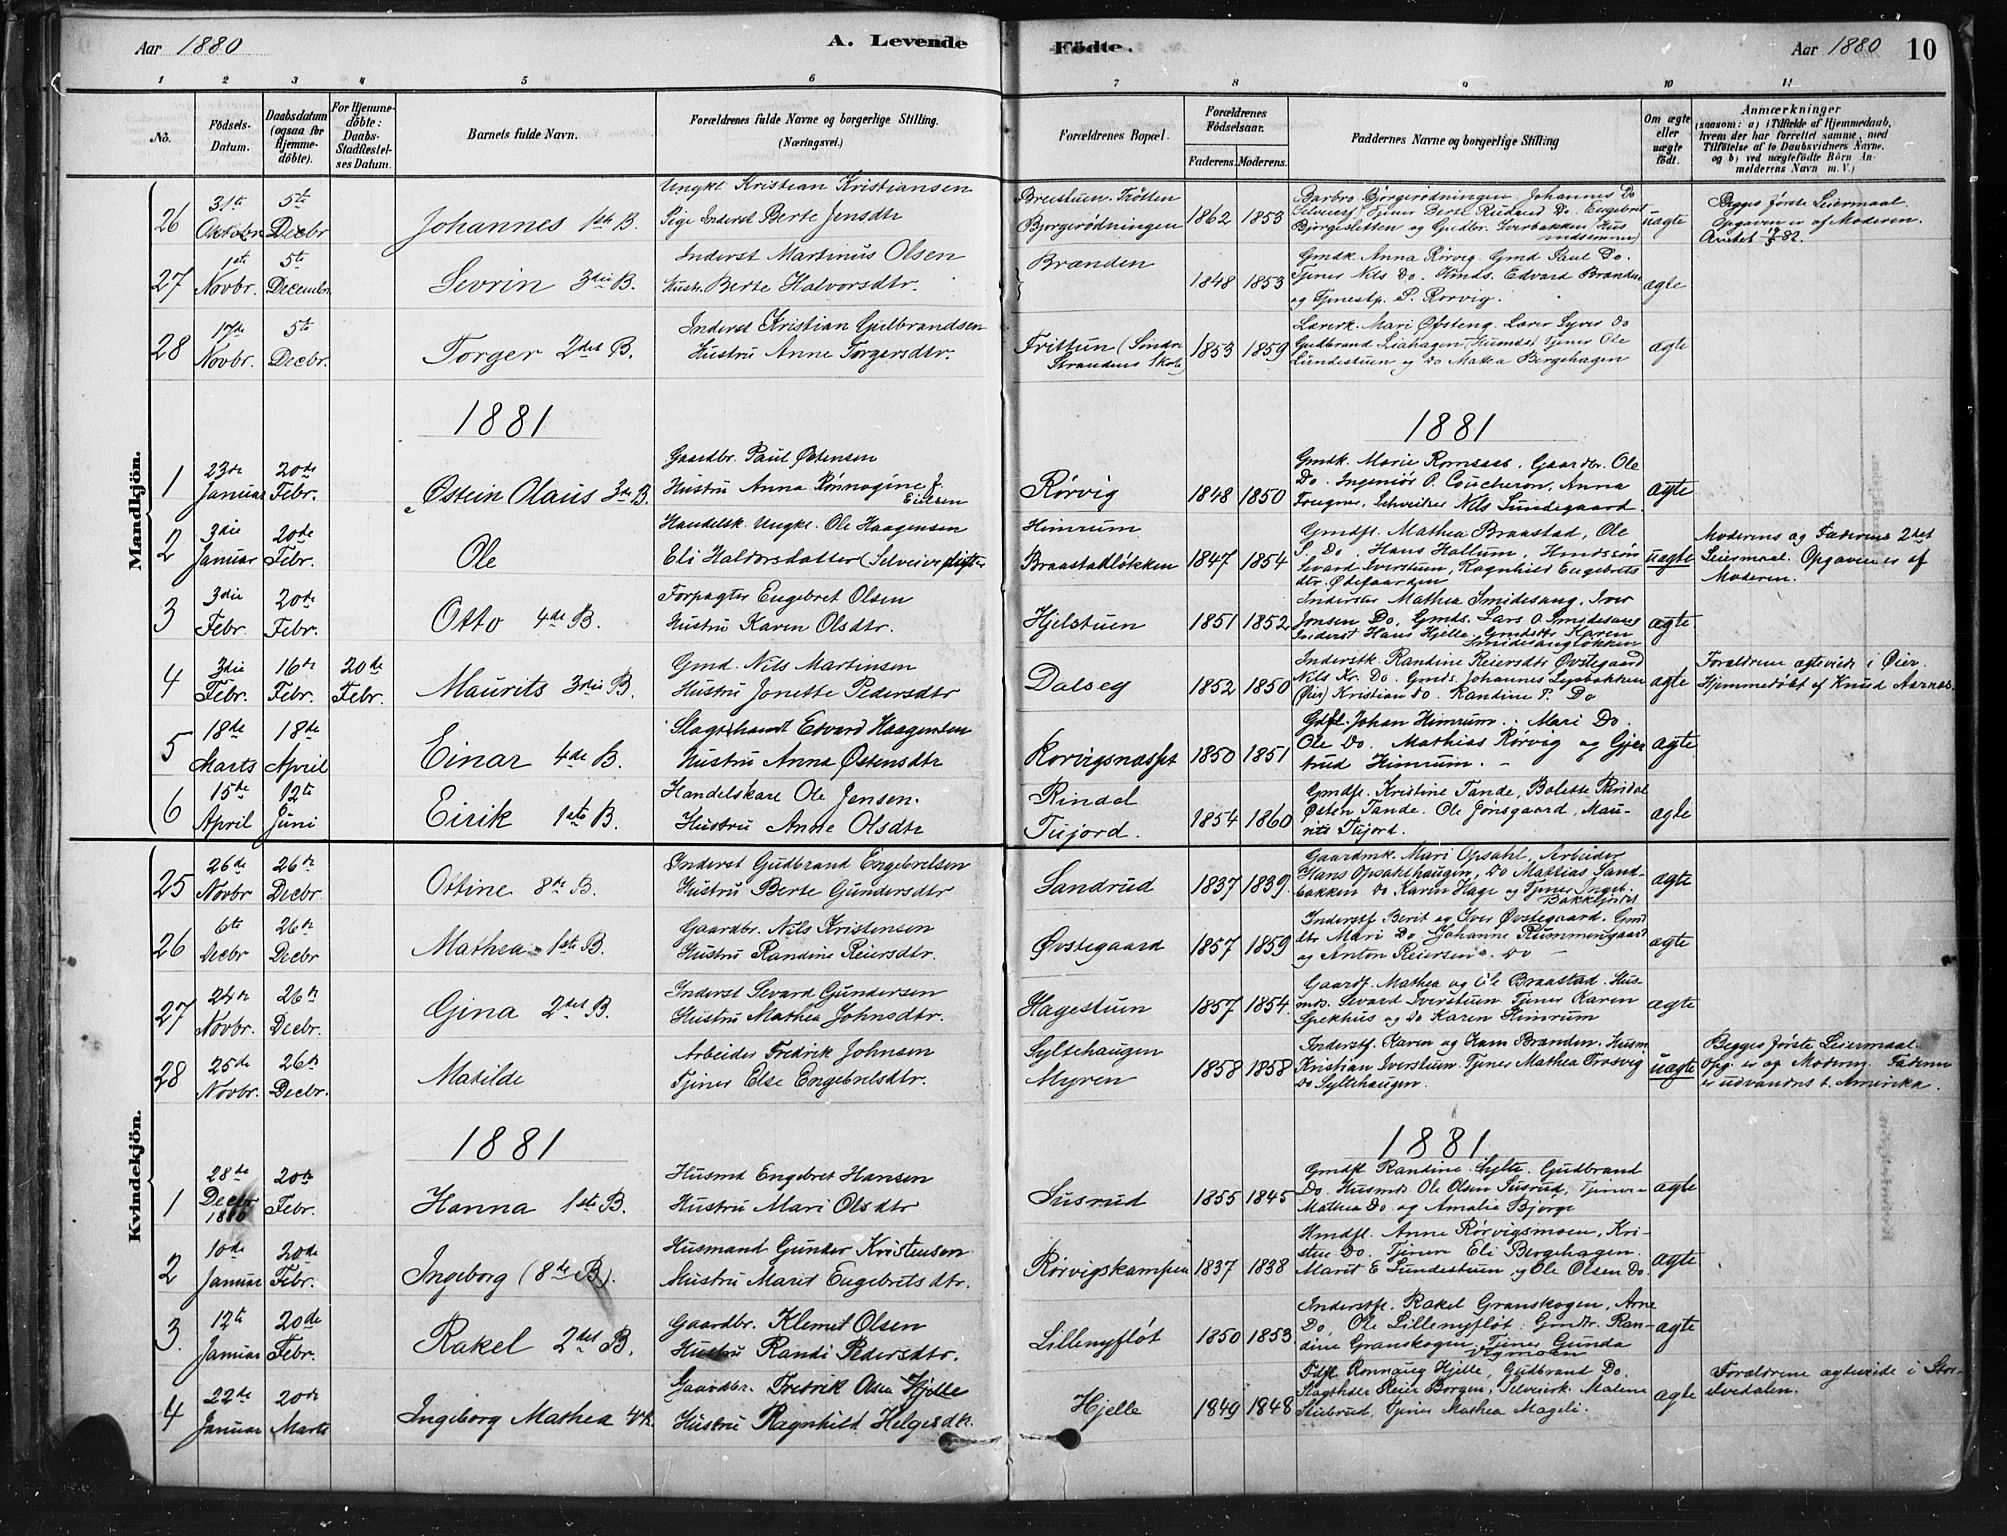 Aar 1880
A. Levende Födte.
Aar 1880
10
1 2 3 4 5 6 7 8 9 10 11
No.
Födsels-Datum.
Daabsdatum (ogsaa for Hjemme-döbte).
For Hjemme-döbte: Daabs-Stadfæstel-ses Datum.
Barnets fulde Navn.
Forældrenes fulde Navne og borgerlige Stilling. (Næringsvei.)
Forældrenes Bopæl.
Forældrenes Födselsaar.
Faderens. Moderens.
Faddernes Navne og borgerlige Stilling
Om ægte eller uægte födt.
Anmærkninger
(saasom: a) i Tilfælde af Hjemmedaab, hvem der har forrettet samme, med Tilföielse af to Daabsvidners Navne, og b) ved uægtefödte Börn An-melderens Navn m. V.)
Mandkjön.
26 31te Oktober 5te Decbr Johannes 1ste B.
Ungkl Kristian Kristiansen
Pige Inderst Berte Jensdtr
Breistuen Trötten
Bjørgerødningen 1862 1853
Barbro Børgerødningen Johannes Do
uægte
Begges første Leiermaal.
Opgaven er af Moderen.
27 1ste Novbr. 5te Decembr. Sevrin 3die B.
Inderst Martinus Olsen
Hustr. Berte Halvorsdtr.
Brænden 1848 1853
Gmdk. Anna Rørvig. Gmd Paul Do.
Tjener Nils Do. Hmds. Edvard Brænden
og Tjenestp. P. Rørvig.
ægte
28 17de Novbr. 5te Decbr. Torger 2det B.
Inderst Kristian Gulbrandsen
Hustru Anne Torgersdtr.
Fristun (Søndre Strandens Skole) 1853 1859
Lærerk. Mari Øfsteng. Lærer Syver Do
Gudbrand Liahagen, Husmds. Tjener Ole
Lundestuen og Do Mathea Bergehagen
ægte
1881
1881
1 23de Januar 20de Febr. Østein Olaus 3die B.
Gaardbr. Paul Østensen
Hustru Anna Rønnogine f. Eielsen
Rørvig 1848 1850
Gmdk. Marie Romsaas. Gaardbr. Ole
Do. Ingeniör O. Coucheron, Anna
Trugne, Schveidser Nils Lundegaard.
ægte
2 3die Januar 20de Febr. Ole
Handelsk. Ungkl. Ole Haagensen
Eli Haldorsdatter (Selveierdatter
Himrum
Braastadløkken 1847 1854
Gmdfl. Mathea Braastad, Ole
S. Do, Hans Hallum, Hmdssøn
Sevard Iverstuen, Ragnhild Engebrets
dtr. Ødegaarden
uægte
Moderens og Faderens 2det
Leiermaal. Opgaven er af
Moderen.
3 3die Febr. 20de Febr. Otto 4de B.
Forpagter Engebret Olsen
Hustru Karen Olsdtr.
Hjelstuen 1851 1852
Inderster Mathea Smidesang, Iver
Jonsen Do, Gmds. Lars O. Smidesang
Inderst Hans Hjelle, Gmdsdtr Karen
Smidesangløkken
ægte
4 3die Febr. 16de Febr. 20de Febr. Maurits 3die B.
Gmd. Nils Martinsen
Hustru Jonette Pedersdtr
Dalseg 1852 1850
Inderstk. Randine Reiersdtr Øvstegaard
Nils Kr. Do. Gmds. Johannes Lysbakken
(Øier) Kristian Do. Randine P. Do
ægte
Forældrene ægteviede i Øier.
Hjemmedøbt af Knud Aarnæs.
5 18de Marts 18de April Einar 4de B.
Slagtehandl Edvard Haagensen
Hustru Anna Østensdtr
Rørvigsnæsset 1850 1851
Gdfl. Johan Himrum. Mari Do.
Ole Do. Mathias Rørvig og Gjer
trud Himrum.
ægte
6 15de April 12te Juni Eirik 1ste B.
Handelskare Ole Jensen.
Hustru Anne Olsdtr
Rindal
Tujord. 1854 1860
Gmdfl. Kristine Tande, Bolette Rindal
Østen Tande. Ole Jønsgaard, Mau-
rits Tujord.
ægte
Kvindekjön.
25 26de Novbr 26de Decbr Ottine 8de B.
Inderst Gudbrand Engebretsen
Hustru Berte Gundersdtr
Sandrud 1837 1839.
Gaardmk. Mari Opsahl, Arbeider
Hans Opsahlhaugen, Do Mathias Sand-
bakken Do Karen Hage og Tjener Ingeb.
Bakkejordet
ægte
26 6te Decbr 26de Decbr Mathea 1ste B.
Gaardbr. Nils Kristensen
Hustru Randine Reiersdtr.
Øvstegaard 1857 1859
Inderstf. Berit og Iver Øvstegaard. Gmd
dtr Mari Do. Johanne Rummensgaard
og Anton Reiersen Do
ægte
27 24de Novbr. 26de Decbr. Gina 2det B.
Inderst Sevard Gundersen
Hustru Mathea Johnsdtr.
Hagestuen 1857 1854.
Gaardf. Mathea og Ole Braastad. Hus-
mds. Sevard Iverstuen Tjener Karen
Spekhus og Do Karen Himrum
ægte
28 25de Novbr. 26de Decbr. Matilde
Arbeider Fredrik Johnsen
Tjener Else Engebretsdtr.
Syltehaugen
Myren 1858 1858
Inderstf. Karen og Hans Brænden. Husm
Kristian Iverstuen. Tjener Mathea Trosvig
Do Syltehaugen.
uægte
Begges første Leiermaal.
Opg. er af Moderen. Faderen
er udvandret t. Amerika.
1881
1881
1 28de Decbr 1880 20de Febr. Hanna 1ste B.
Husmd Engebret Hansen
Hustru Mari Olsdtr
Susrud 1855 1845
Gmdfl Randine Sylte. Gudbrand
Do. Husmds. Ole Olsen Susrud, Tjener
Mathea Do og Amalie Bjørge
ægte
2 10de Januar 20de Febr. Ingeborg (8de B).
Husmand Gunder Kristensen
Hustru Marit Engebretsdtr.
Rørvigskampen 1837 1838
Hmdfl. Anne Rørvigsmoen, Kri-
sten Do. Tjener Eli Bergehagen.
Marit E Lundestuen og Ole Olsen Do.
ægte
3. 12te Januar 20de Febr. Rakel 2det B.
Gaardbr. Klemet Olsen
Hustru Randi Pedersdtr.
Lillenyfløt 1850 1853
Inderstfl. Rakel Granskogen, Arne
Do, Ole Lillenyfløt. Gmdtr. Ran-
dine Granskogen, Tjener Gunda
ægte
4 22de Januar 20de Marts Ingeborg Mathea 4de
Gaardbr. Fredrik Olsen Hjelle
Hustru Ragnhild Helgesdtr.
Hjelle 1849 1848
Fdfl Rønnaug Hjelle, Gudbrand Do.
Slagthdlr Reier Borgen, Selveierk. Malene
Stibrud, Tjener Mathea Mageli.
ægte
Forældrene ægteviede i Stor-
elvedalen.